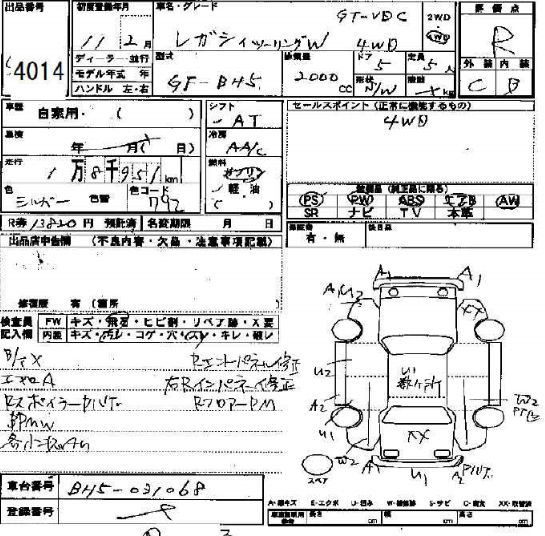 出品番号 4014
初度登録年月 11年 2月
ディーラー・並行
モデル年式 年
ハンドル 左・右
車名・グレード レガシィツーリングW GT-VDC 4WD
2WD 4WD
型式 GF-BH5
排気量 2000 CC
ドア 5
形状 S/W
定員 5人
評価点 R
外装 C 内装 B
車歴 自家用・( )
車検 年 月( 日)
走行 1万8千951km
色 シルバー 色替 カラーコード 792
シフト AT
冷房 AA/C
燃料 ガソリン 軽油
( )
セールスポイント(正常に機能するもの)
4WD
装備品(純正品に限る)
PS PW ABS エアB AW
SR ナビ TV 本革
R券 13820円 預託済 名変期限 月 日
有・無
出品店申告欄 (不良内容・欠品・注意事項記載)
修復歴 有(箇所
検査員記入欄
FW キズ・飛石・ヒビ割・リペア跡・X要
内装 キズ・汚レ・コゲ・穴・スレ・キレ・破レ
エアロA
RスポイラーPハゲ
RエンドパネルR修正
右Rインパネイ修正
RフロアーPM
A1 A1
XX
U2
A2
U1
W2
U1
W2
XX
A1 U1 A2
スペア
A-線キズ E-エクボ U-凹み W-補修跡 S-サビ C-腐食 XX-取替済
車台番号 BH5-031068
登録番号
長さ cm 幅 cm 高さ cm